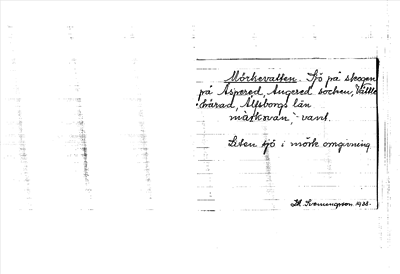 Mörkevatten. Sjö på skogen
på Aspered, Angered socken, Vättle
härad, Älvsborgs län
mårkovan, - vant.
Liten sjö i mörk omgivning
1933.